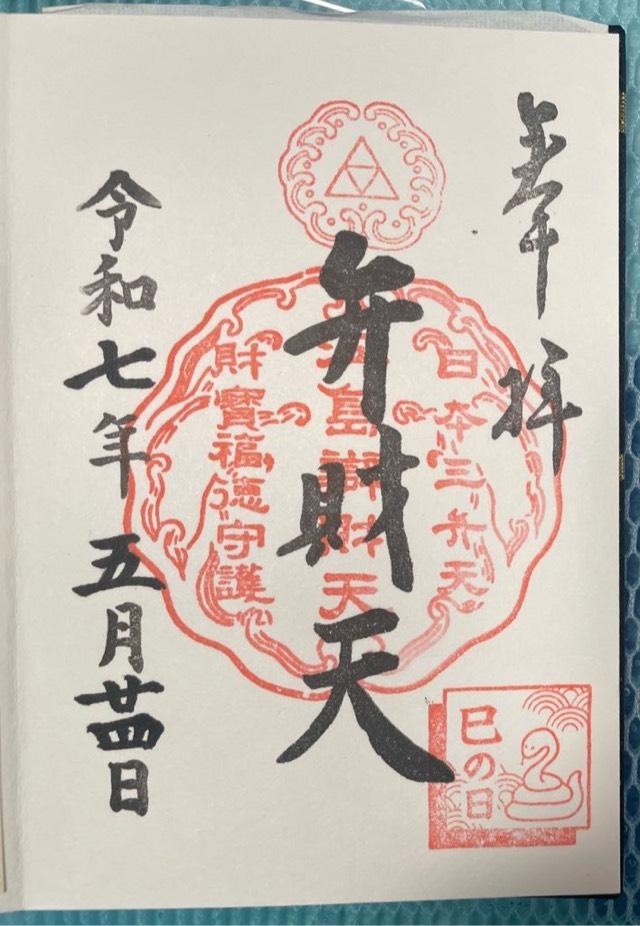 奉拝
日本三弁天
島財天
弁財天
財寶福徳守護
令和七年五月廿四日
巳の日